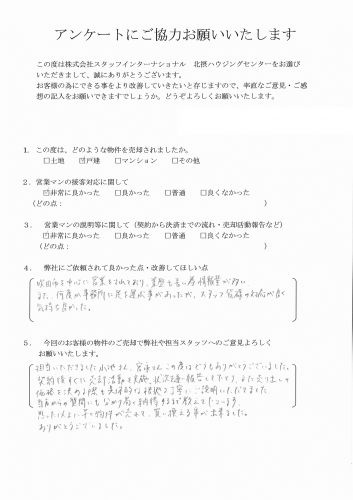 アンケートにご協力お願いいたします
この度は株式会社スタッフインターナショナル 北摂ハウジングセンターをお選び
いただきまして、誠にありがとうございます。
お客様の為にできる事をより改善していきたいと存じますので、率直なご意見・ご感
想の記入をお願いできますでしょうか。どうぞよろしくお願いいたします。
1. この度は、どのような物件を売却されましたか。
□土地 ☑戸建 □マンション □その他
2. 営業マンの接客対応に関して
☑非常に良かった □良かった □普通 □良くなかった
(どの点: )
3. 営業マンの説明等に関して(契約から決済までの流れ・売却活動報告など)
☑非常に良かった □良かった □普通 □良くなかった
(どの点: )
4. 弊社にご依頼されて良かった点・改善してほしい点
吹田市を中心に営業をされており、 情報量が多い
また、何度か事務所に足を運ぶ事があったが、スタッフ皆様の対応が良く
気持ち良かった。
5. 今回のお客様の物件のご売却で弊社や担当スタッフへのご意見よろしく
お願いいたします。
担当いただきました さん、 さん この度はどうもありがとうございました。
契約後すぐに売却活動を実施、状況を 報告して下さり、また売り出しの
価格を決める際も具体的な根拠を丁寧にご説明いただきました
当方からの質問にも 納得するまで教えて下さいます
思った以上に早く物件が売れて、買い換える事が出来ました。
ありがとうございました。